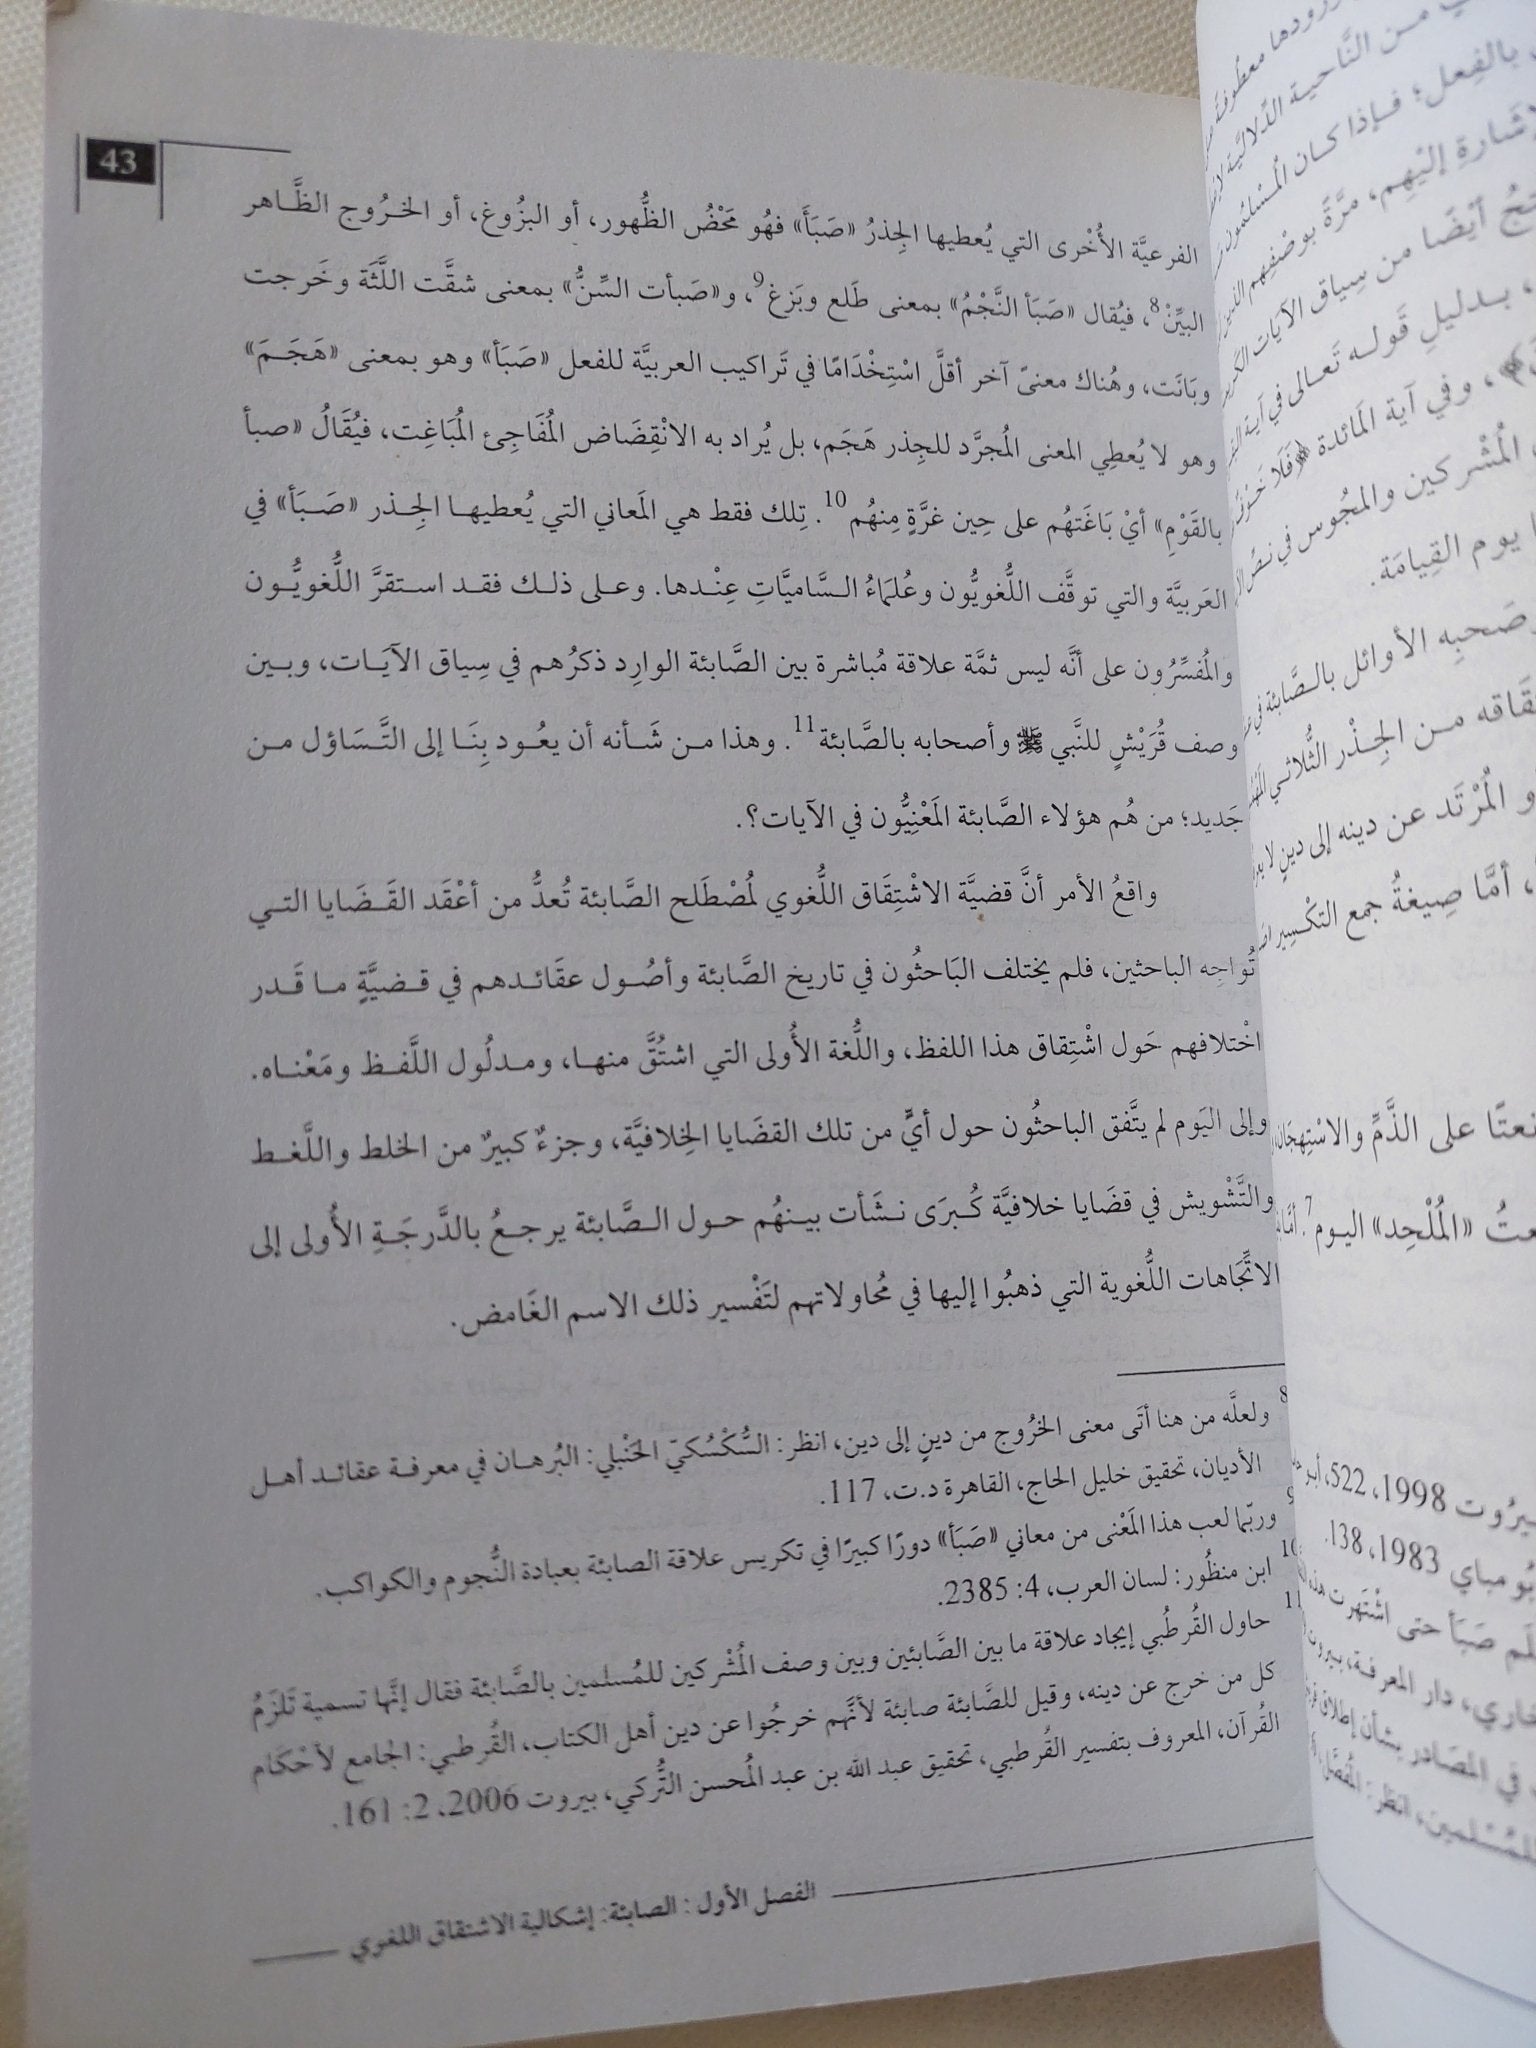 43
الفرعيَّة الأُخْرى التي يُعطيها الجِذرُ «صَبَأَ» فهُو مَحْضُ الظُّهور، أو البزُوغ، أو الخرُوج الظَّاهر
البيِّنْ8، فيُقال «صَبَأ النَّجْمُ» بمعنى طَلع وبَزغ9، و«صَبأت السِّنُّ» بمعنى شقَّت اللَّثَة وخَرجت
وبَانَت، وهُناك معنىً آخر أقلَّ اسْتِخْدَامًا في تَراكيب العربيَّة للفعل «صَبَأ» وهو بمعنى «هَجَمَ»
وهو لا يُعطِي المعنى المُجرَّد للجِذر هَجَم، بل يُراد به الانْقِضَاض المُفَاجِئ المُبَاغِت، فيُقَالُ «صبأ
بالقَوْمِ» أيْ بَاغَتهُم على حِين غرَّةٍ مِنهُم10. تِلك فقط هي المَعاني التي يُعطيها الجِذر «صَبَأ» في
العَربيَّة والتي توقَّف اللُّغويُّون وعُلمَاءُ السَّاميَّاتِ عِنْدها. وعلى ذلك فقد استقرَّ اللُّغويُّون
والمُفسِّرُون على أنَّه ليس ثمَّة علاقة مُباشرة بين الصَّابئة الوارِد ذكرُهم في سِياق الآيَات، وبين
وصف قُرَيْشٍ للنَّبي ﷺ وأصحابه بالصَّابئة11. وهذا من شَأنه أن يعُود بِنَا إلى التَّسَاؤل من
جَديد؛ من هُم هؤلاء الصَّابئة المَعْنِيُّون في الآيات؟.
واقعُ الأمر أنَّ قضيَّة الاشْتِقَاق اللُّغوي لمُصْطَلح الصَّابئة تُعدُّ من أعْقَد القَضَايا التي
تُواجِه الباحثين، فلم يختلف البَاحثُون في تاريخ الصَّابئة وأصُول عقَائدهم في قضيَّةٍ ما قَدر
اخْتلافهم حَول اشْتِقاق هذا اللفظ، واللُّغة الأُولى التي اشتُقَّ منها، ومدلُول اللَّفظ ومَعْناه.
وإلى اليَوم لم يتَّفق الباحثُون حول أيٍّ من تلك القضَايا الخِلافيَّة، وجزءٌ كبيرٌ من الخلط واللَّغط
والتَّشْويش في قضَايا خلافيَّة كُبرَى نشَأت بينهُم حول الصَّابئة يرجعُ بالدَّرجَةِ الأُولى إلى
الاتِّجَاهات اللُّغوية التي ذهبُوا إليها في مُحاولاتهم لتَفْسير ذلك الاسم الغَامض.
8 ولعلَّه من هنا أتَى معنى الخرُوج من دينٍ إلى دين، انظر: السُّكْسُكيّ الحَنْبلي: البُرهان في معرفة عقائد أهل
الأديان، تحقيق خليل الحاج، القاهرة د.ت، 117.
9 وربّما لعب هذا المَعْنى من معاني «صَبَأ» دورًا كبيرًا في تكريس علاقة الصابئة بعبادة النُّجوم والكواكب.
10 ابن منظُور: لسان العرب، 4: 2385.
11 حاول القُرطُبي إيجاد علاقة ما بين الصَّابئين وبين وصف المُشْركين للمُسلمين بالصَّابئة فقال إنَّها تسمية تَلزَمُ
كل من خرج عن دينه، وقيل للصَّابئة صابئة لأنَّهم خرجُوا عن دين أهل الكتاب، القُرطبي: الجامع لأحْكَام
القُرآن، المعروف بتفسير القُرطبي، تحقيق عبد الله بن عبد المُحسن التُّركي، بيروت 2006، 2: 161.
الفصل الأول: الصابئة: إشكالية الاشتقاق اللغوي
رودها معطُوفةً
من النَّاحية الدِّلاليَّة
بالفِعل؛ فإذا كان المُسْلمُون
إليْهِم، مرَّةً بوصْفِهم
أيْضًا من سِياق الآيَات
، بدليلِ قَوله تَعالى في آية
، وفي آية المَائدة ﴿فَلَا
المُشْركين والمجُوس في نصِّ
يوم القِيامَة.
وصَحبِه الأوائل بالصَّابئة في
من الجِذْر الثُّلاثي
المُرْتَد عن دينه إلى دينٍ
، أمَّا صِيغةُ جمع التكْسِير
على الذَّمِّ والاسْتِهجَان
«المُلْحِد» اليوم7. أمَّا
1998، 522،
بُومباي 1983، 138.
صَبَأ حتى اشْتَهرت هذه
دار المعرفة، بيروت
في المصَادر بشأن إطلاق
للمُسْلمين، انظر: المُفصَّل،